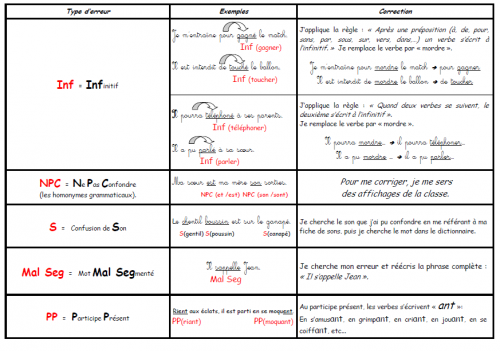 Type d'erreur
Exemples
Correction
Inf = Infinitif
Je m'entraine pour gagné le match.
Inf (gagner)
Il est interdit de touché le ballon.
Inf (toucher)
J'applique la règle : « Après une préposition (à, de, pour,
sans, par, sous, sur, vers, dans,...) un verbe s'écrit à
l'infinitif. » Je remplace le verbe par « mordre ».
Je m'entraine pour mordre le match → pour gagner.
Il est interdit de mordre le ballon → de toucher.
Il pourra téléphoné à ses parents.
Inf (téléphoner)
Il a pu parlé à sa sœur.
Inf (parler)
J'applique la règle : « Quand deux verbes se suivent, le
deuxième s'écrit à l'infinitif ».
Je remplace le verbe par « mordre ».
Il pourra mordre... → il pourra téléphoner...
Il a pu mordre ... → il a pu parler...
NPC = Ne Pas Confondre
(les homonymes grammaticaux).
Ma sœur est ma mère son sorties.
NPC (et /est) NPC (son /sont)
Pour me corriger, je me sers
des affichages de la classe.
S = Confusion de Son
Le chentil boussin est sur le ganapé.
S(gentil) S(poussin) S(canapé)
Je cherche le son que j'ai pu confondre en me référant à ma
fiche de sons, puis je cherche le mot dans le dictionnaire.
Mal Seg = Mot Mal Segmenté
Il sappelle Jean.
Mal Seg
Je cherche mon erreur et réécris la phrase complète :
« Il s'appelle Jean ».
PP = Participe Présent
Rient aux éclats, il est parti en se moquent.
PP(riant) PP(moquant)
Au participe présent, les verbes s'écrivent « ant »:
En s'amusant, en grimpant, en criant, en jouant, en se
coiffant, etc...